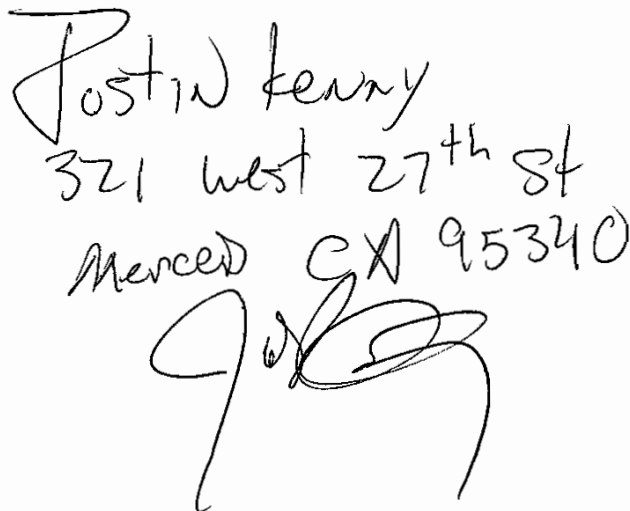 Justin Kenny
321 west 27th St
Merced CA 95340